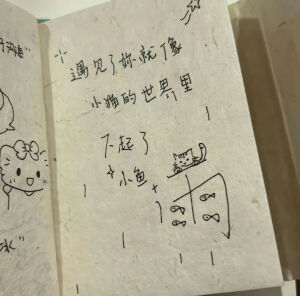 遇见了妳就像
小猫的世界里
下起了
小鱼
雨
冰"